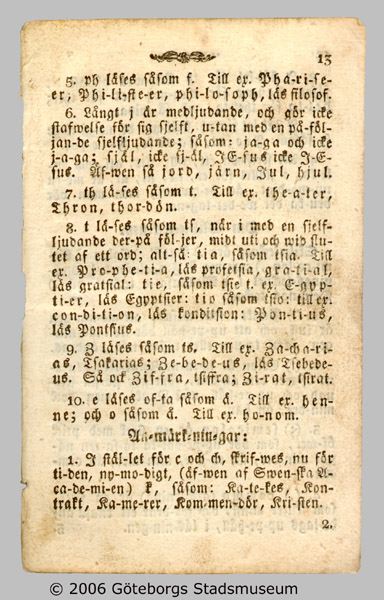 13
5. ph läses såsom f. Till ex. Pha-ri-se-
er, Phi-li-ste-er, phi-lo-soph, läs filosof.
6. Långt j är medljudande, och gör icke
stafwelse för sig sjelft, u-tan med en på-föl-
jan-de sjelfljudande; såsom: ja-ga och icke
j-a-ga; själ, icke sj-äl, JE-sus icke J-E-
sus. Äf-wen så jord, järn, Jul, hjul.
7. th lä-ses såsom t. Till ex. the-a-ter,
Thron, thor-dön.
8. t lä-ses såsom ts, när i med en sjelf-
ljudande der-på föl-jer, midt uti och wid slu-
tet af ett ord; alt-så tia, såsom tsia. Till
ex. Pro-phe-ti-a, läs profetsia, gra-ti-al,
läs gratsial: tie, såsom tsie t. ex. E-gyp-
ti-er, läs Egyptsier: tio såsom tsio: till ex.
con-di-ti-on, läs konditsion: Pon-ti-us,
läs Pontsius.
9. Z läses såsom ts. Till ex. Za-cha-ri-
as, Tsakarias; Ze-be-de-us, läs Tsebede-
us. Så ock Zif-fra, tsiffra; Zi-rat, tsirat.
10. e läses of-ta såsom ä. Till ex. hen-
ne; och o såsom å. Till ex. ho-nom.
An-märk-nin-gar:
1. I stäl-let för c och ch, skrif-wes, nu för
ti-den, ny-mo-digt, (äf-wen af Swen-ska A-
ca-de-mi-en) k, såsom: Ka-te-kes, Kon-
trakt, Ka-me-rer, Kom-men-dör, Kri-sten.
2.
© 2006 Göteborgs Stadsmuseum